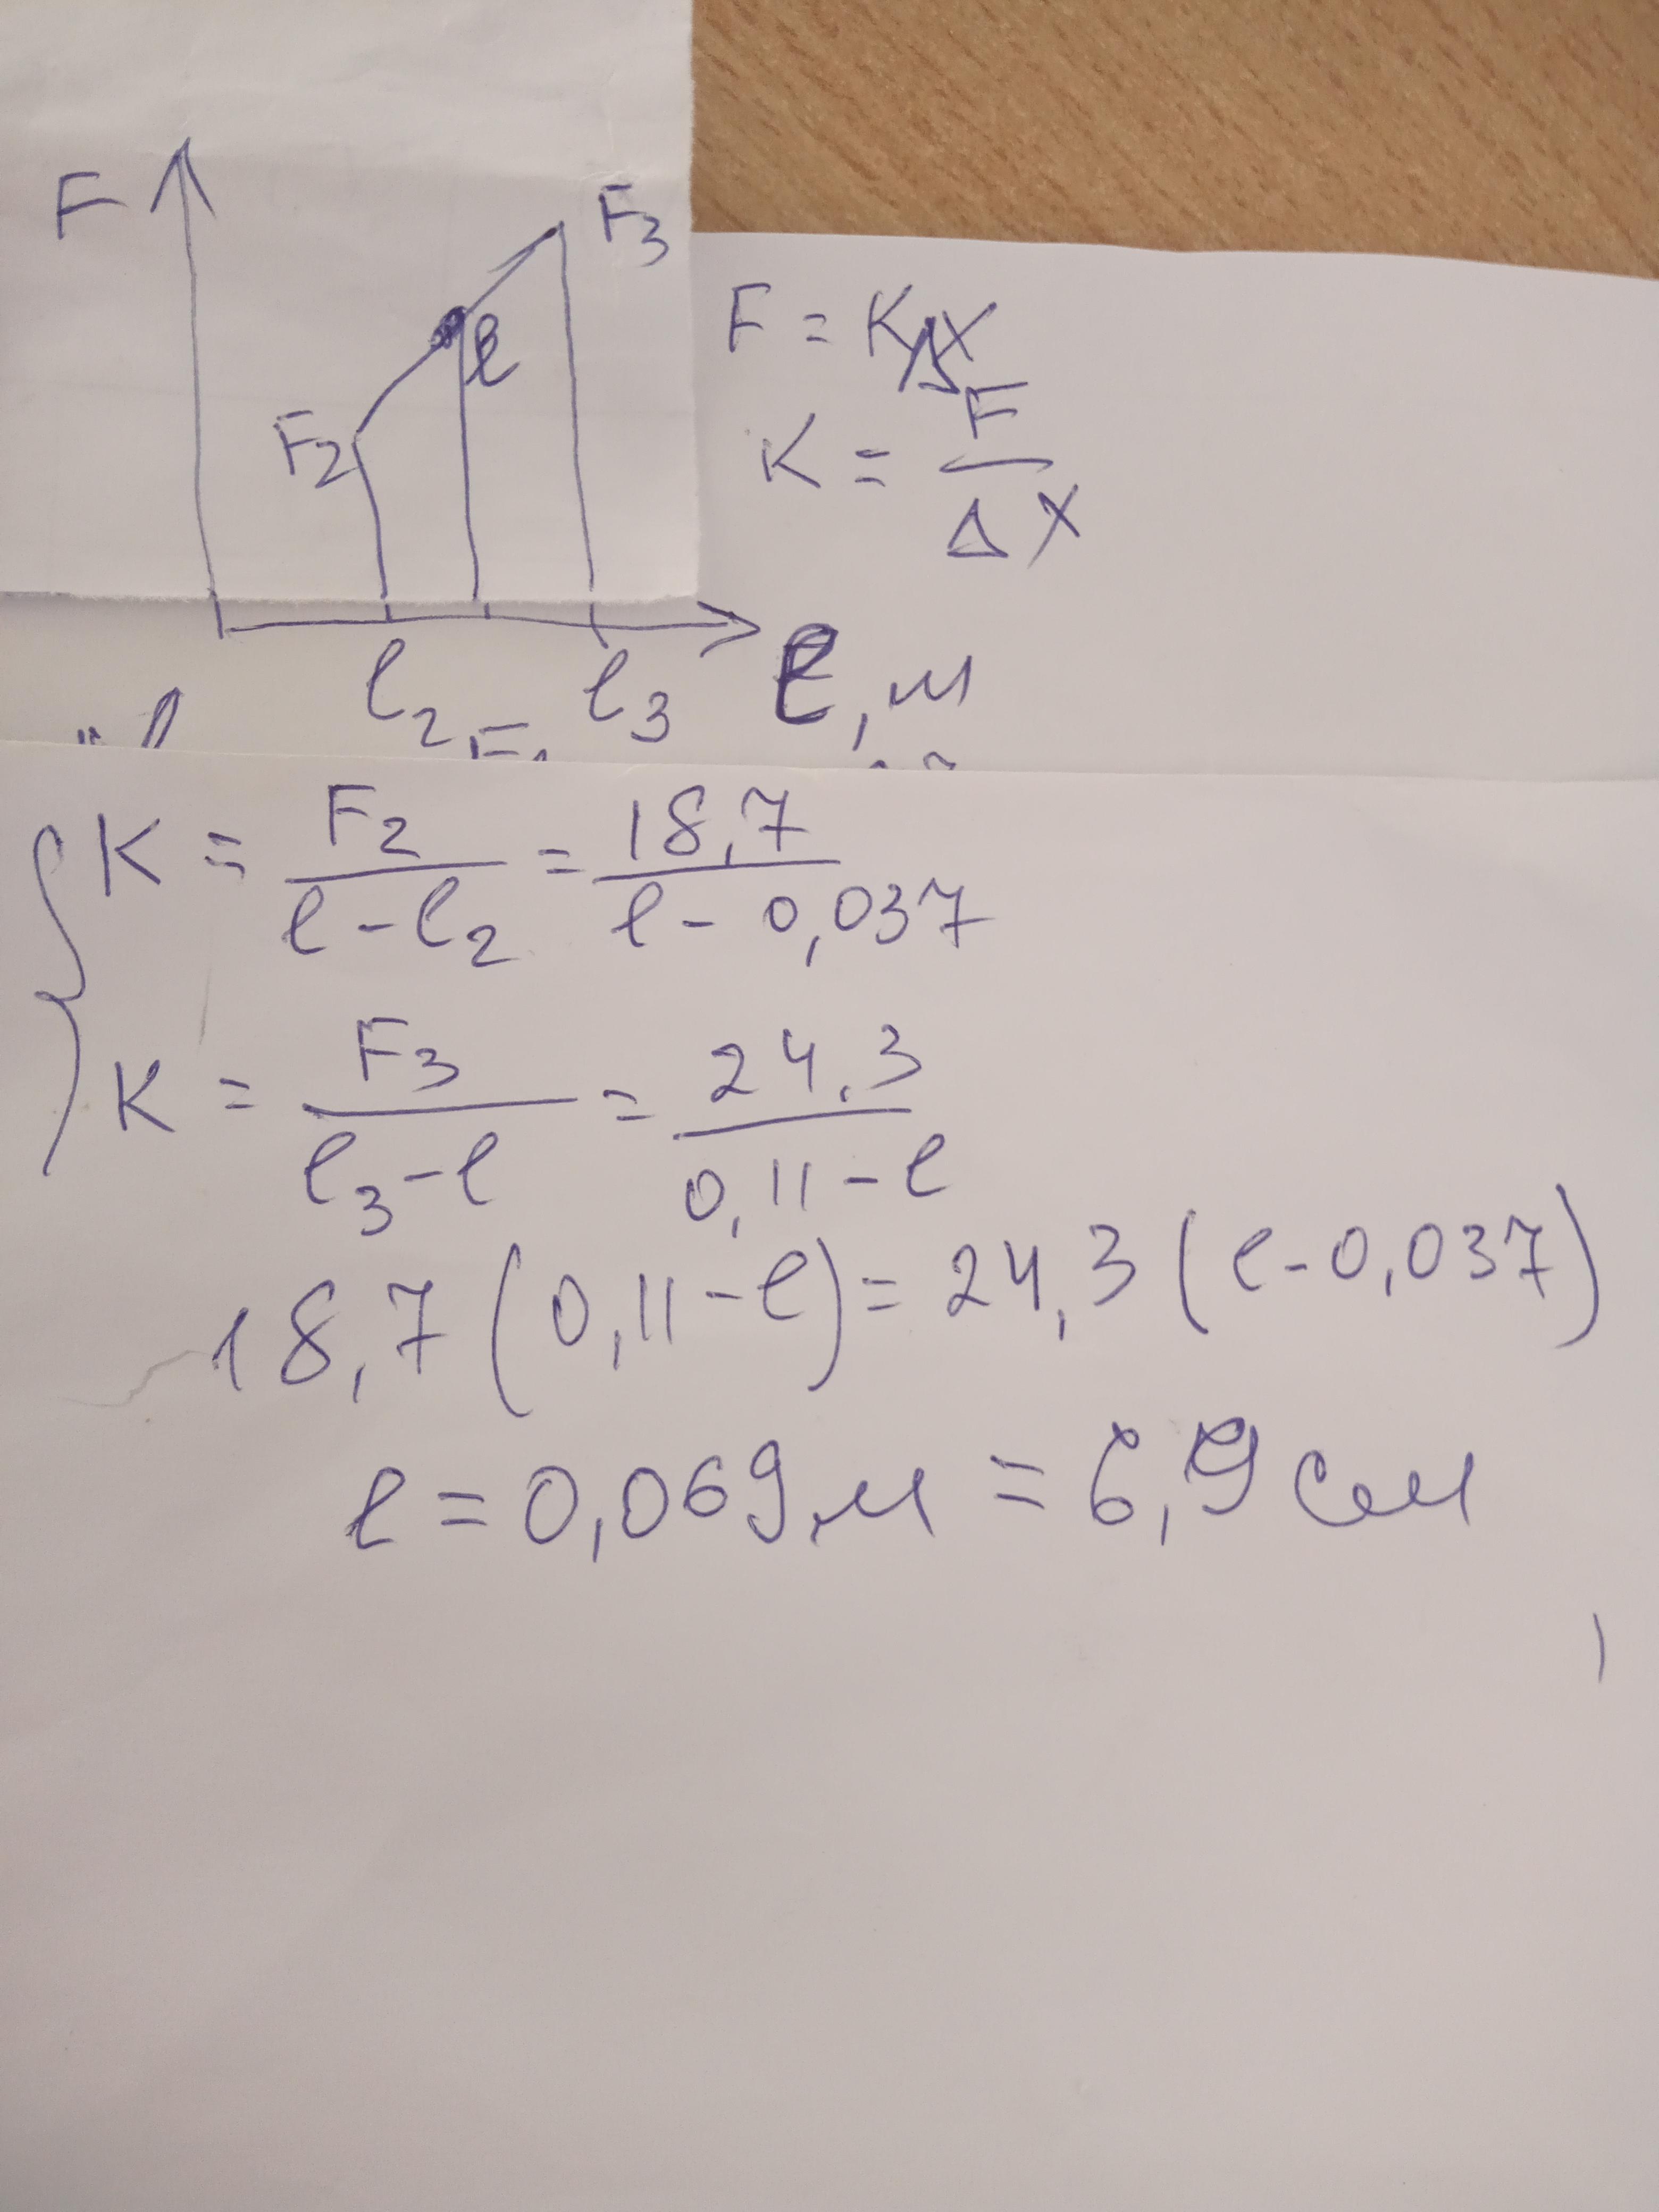 F
F3
l
F2
F = KΔX
K = F / ΔX
l2 l3 l, м
{ K = F2 / (l - l2) = 18,7 / (l - 0,037)
K = F3 / (l3 - l) = 24,3 / (0,11 - l)
18,7 (0,11 - l) = 24,3 (l - 0,037)
l = 0,069 м = 6,9 см